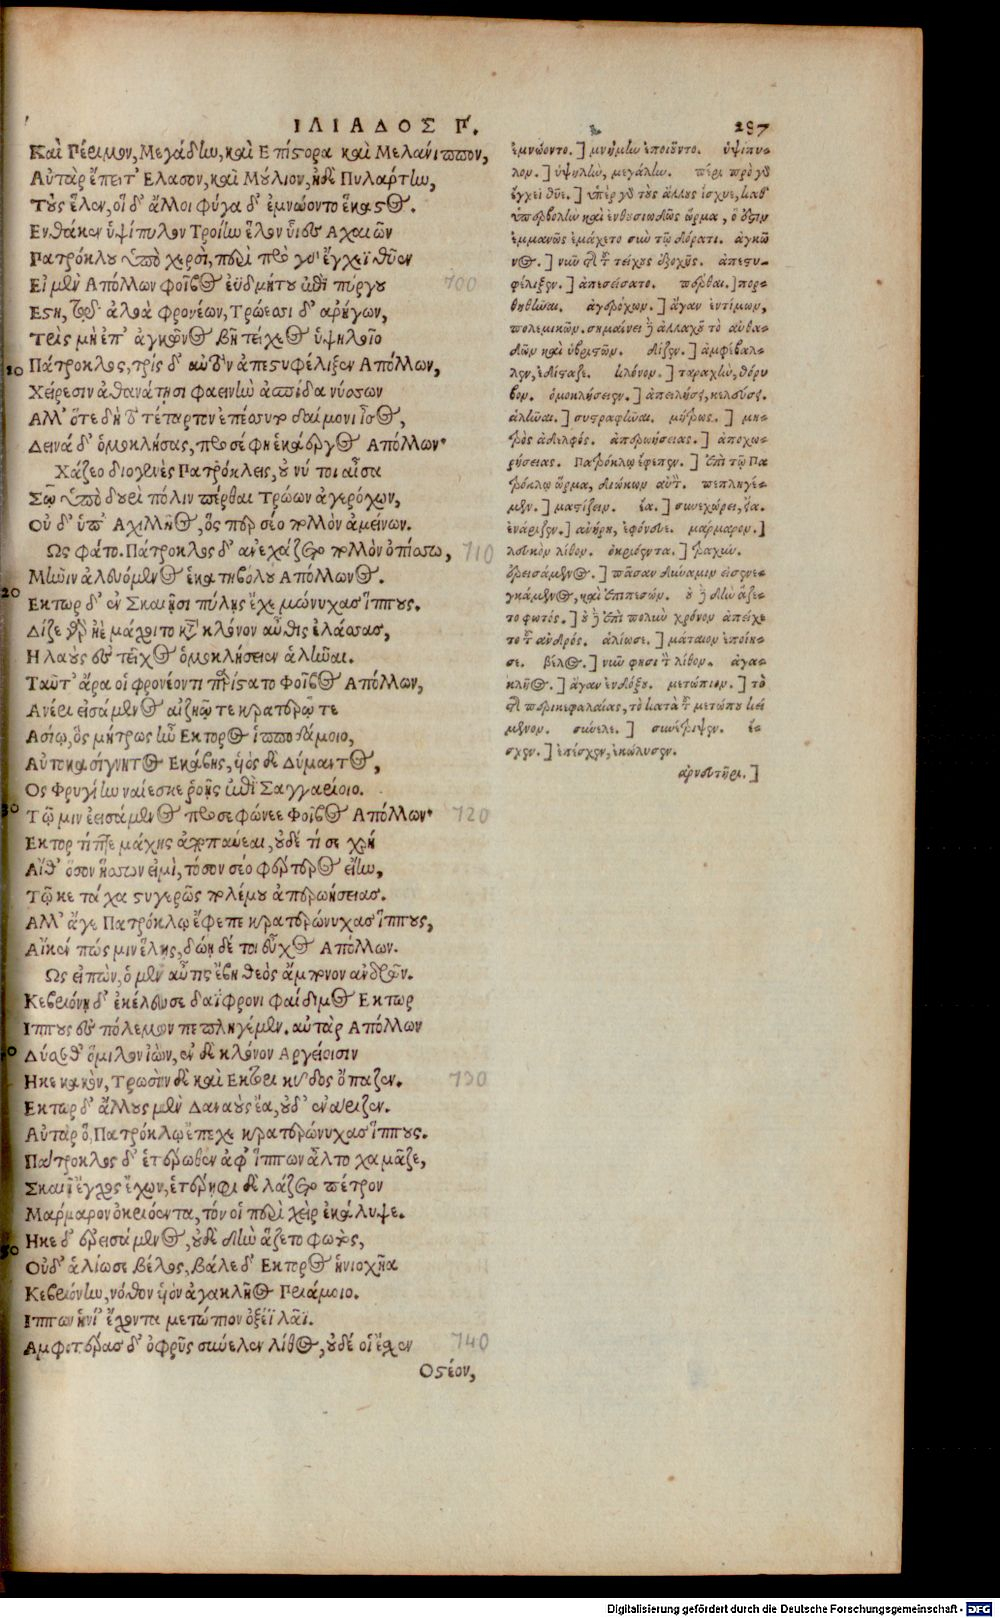 ΙΛΙΑΔΟΣ Π. 287
Καὶ Πέριμον, Μεγάδην, καὶ Επίστορα καὶ Μελάνιππον,
Αὐτὰρ ἔπειτ' Ελασον, καὶ Μούλιον, ἠδὲ Πυλάρτην,
Τοὺς ἕλεν, οἱ δ' ἄλλοι φύγα δ' ἐμνώοντο ἕκαστος.
Ενθά κεν ὑψίπυλον Τροίην ἕλον υἷες Αχαιῶν
Πατρόκλου ὑπὸ χερσὶ, περὶ πρὸ γὰρ ἔγχεϊ θῦεν
Εἰ μὴ Απόλλων Φοῖβος ἐϋδμήτου ἐπὶ πύργου 700
Εστη, τῷ ὀλοὰ φρονέων, Τρώεσσι δ' ἀρήγων,
Τρὶς μὲν ἐπ' ἀγκῶνος βῆ τείχεος ὑψηλοῖο
10 Πάτροκλος, τρὶς δ' αὐτὸν ἀπεστυφέλιξεν Απόλλων,
Χείρεσιν ἀθανάτῃσι φαεινὴν ἀσπίδα νύσσων
Αλλ' ὅτε δὴ τὸ τέταρτον ἐπέσσυτο δαίμονι ἶσος,
Δεινὰ δ' ὁμοκλήσας, προσέφη ἑκάεργος Απόλλων·
Χάζεο διογενὲς Πατρόκλεις, οὔ νύ τοι αἶσα
Σῷ ὑπὸ δουρὶ πόλιν πέρθαι Τρώων ἀγερώχων,
Οὐ δ' ὑπ' Αχιλλῆος, ὅς περ σέο πολλὸν ἀμείνων.
Ως φάτο. Πάτροκλος δ' ἀνεχάζετο πολλὸν ὀπίσσω, 710
Μῆνιν ἀλευόμενος ἑκατηβόλου Απόλλωνος.
20 Εκτωρ δ' ἐν Σκαιῇσι πύλῃς ἔχε μώνυχας ἵππους.
Δίζε γὰρ ἠὲ μάχοιτο κατὰ κλόνον αὖθις ἐλάσσας,
Η λαοὺς ἐς τεῖχος ὁμοκλήσειεν ἀλῆναι.
Ταῦτ' ἄρα οἱ φρονέοντι παρίστατο Φοῖβος Απόλλων,
Ανέρι εἰσάμενος αἰζηῷ τε κρατερῷ τε
Ασίῳ, ὃς μήτρως ἦν Εκτορος ἱπποδάμοιο,
Αὐτοκασίγνητος Εκάβης, υἱὸς δὲ Δύμαντος,
Ος Φρυγίην ναίεσκε ῥοῇς ἐπὶ Σαγγαρίοιο.
30 Τῷ μιν ἐεισάμενος προσεφώνεε Φοῖβος Απόλλων· 720
Εκτορ τίπτε μάχης ἀποπαύεαι, οὐδέ τί σε χρή
Αἴθ' ὅσον ἥσσων εἰμὶ, τόσον σέο φέρτερος εἴην,
Τῷ κε τάχα στυγερῶς πολέμου ἀπερωήσειας.
Αλλ' ἄγε Πατρόκλῳ ἔφεπε κρατερώνυχας ἵππους,
Αἴκέν πώς μιν ἕλῃς, δώῃ δέ τοι εὖχος Απόλλων.
Ως εἰπὼν, ὁ μὲν αὖτις ἔβη θεὸς ἂμ πόνον ἀνδρῶν.
Κεβριόνῃ δ' ἐκέλευσε δαΐφρονι φαίδιμος Εκτωρ
Ιππους ἐς πόλεμον πεπληγέμεν. αὐτὰρ Απόλλων
40 Δύσεθ' ὅμιλον ἰὼν, ἐν δὲ κλόνον Αργείοισιν
Ηκε κακὸν, Τρωσὶν δὲ καὶ Εκτορι κῦδος ὄπαζεν. 730
Εκτωρ δ' ἄλλους μὲν Δαναοὺς ἔα, οὐδ' ἐνάριζεν.
Αὐτὰρ ὁ, Πατρόκλῳ ἔπεχε κρατερώνυχας ἵππους.
Πάτροκλος δ' ἑτέρωθεν ἀφ' ἵππων ἆλτο χαμᾶζε,
Σκαιῇ ἔγχος ἔχων, ἑτέρηφι δὲ λάζετο πέτρον
Μάρμαρον ὀκριόεντα, τόν οἱ περὶ χεὶρ ἐκάλυψε.
50 Ηκε δ' ἐρεισάμενος, οὐδὲ δὴν ἅζετο φωτὸς,
Οὐδ' ἁλίωσε βέλος, βάλε δ' Εκτορος ἡνιοχῆα
Κεβριόνην, νόθον υἱὸν ἀγακλῆος Πριάμοιο.
Ιππων ἡνί' ἔχοντα μετώπιον ὀξέϊ λᾶϊ.
Αμφοτέρας δ' ὀφρῦς σύνελεν λίθος, οὐδέ οἱ ἔσχεν 740
Οστέον,
ἐμνώοντο.] μνήμην ἐποιοῦντο. ὑψίπυ-
λον.] ὑψηλὴν, μεγάλην. πέρι πρὸ γὰρ
ἔγχεϊ θῦε.] ὑπὲρ γὰρ τοὺς ἄλλους ἴσχυε, καθ'
ὑπερβολὴν καὶ ἐνθουσιωδῶς ὥρμα, ὅ ἐστιν
ἐμμανῶς ἐμάχετο σὺν τῷ δόρατι. ἀγκῶ
νος.] νῦν ἐπὶ τῆς τείχους ἐξοχῆς. ἀπεστυ-
φέλιξεν.] ἀπεσείσατο. πέρθαι.] πορ-
θηθῆναι. ἀγερώχων.] ἄγαν ἐντίμων,
πολεμικῶν. σημαίνει δὲ ἀλλαχοῦ τὸ αὐθα-
δῶν καὶ ὑβριστῶν. δίζεν.] ἀμφέβαλ-
λεν, ἐδίσταζε. κλόνον.] ταραχὴν, θόρυ
βον. ὁμοκλήσειεν.] ἀπειλήσῃ, κελεύσῃ.
ἀλῆναι.] συστραφῆναι. μήτρως.] μη-
τρὸς ἀδελφός. ἀπερωήσειας.] ἀποχω-
ρήσειας. Πατρόκλῳ ἔφεπεν.] ἐπὶ τῷ Πα
τρόκλῳ ὥρμα, διώκων αὐτόν. πεπληγέ-
μεν.] μαστίζειν. ἔα.] συνεχώρει, ἔα.
ἐνάριζεν.] ἀνῄρει, ἐφόνευε. μάρμαρον.]
λευκὸν λίθον. ὀκριόεντα.] τραχύν.
ἐρεισάμενος.] πᾶσαν δύναμιν εἰσενε-
γκάμενος, καὶ ἐπιπεσών. οὐ δὲ δὴν ἅζε-
το φωτός.] οὐ δὲ ἐπὶ πολὺν χρόνον ἀπείχε
το τοῦ ἀνδρός. ἁλίωσε.] μάταιον ἐποίη-
σε. βέλος.] νῦν φησὶ τὸν λίθον. ἀγα-
κλῆος.] ἄγαν ἐνδόξου. μετώπιον.] τὸ
ἐπὶ περικεφαλαίας, τὸ κατὰ τοῦ μετώπου κεί
μενον. σύνελε.] συνέτριψεν. ἔ-
σχεν.] ἐπέσχεν, ἐκώλυσεν.
ἀρνευτῆρι.]
Digitalisierung gefördert durch die Deutsche Forschungsgemeinschaft - DFG